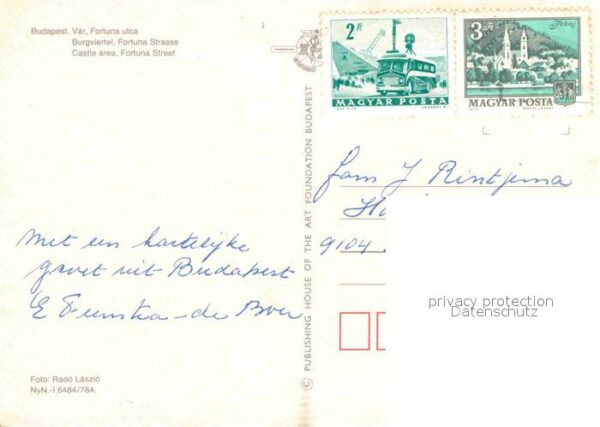 Budapest. Vár, Fortuna utca
Burgviertel, Fortuna Strasse
Castle area, Fortuna Street
2 Ft
MAGYAR POSTA
3 Ft
MAGYAR POSTA
Fam J Rintjema
9104
Met een hartelijke
groet uit Budapest
de Boer
© PUBLISHING HOUSE OF THE ART FOUNDATION BUDAPEST
privacy protection
Datenschutz
Foto: Radó László
NyN.-I.6484/784.